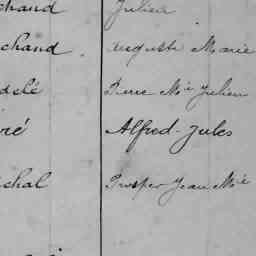 chand Julien
chand Auguste Marie
delé Pierre Mie Julien
ré Alfred-Jules
chal Prosper Jean Mie